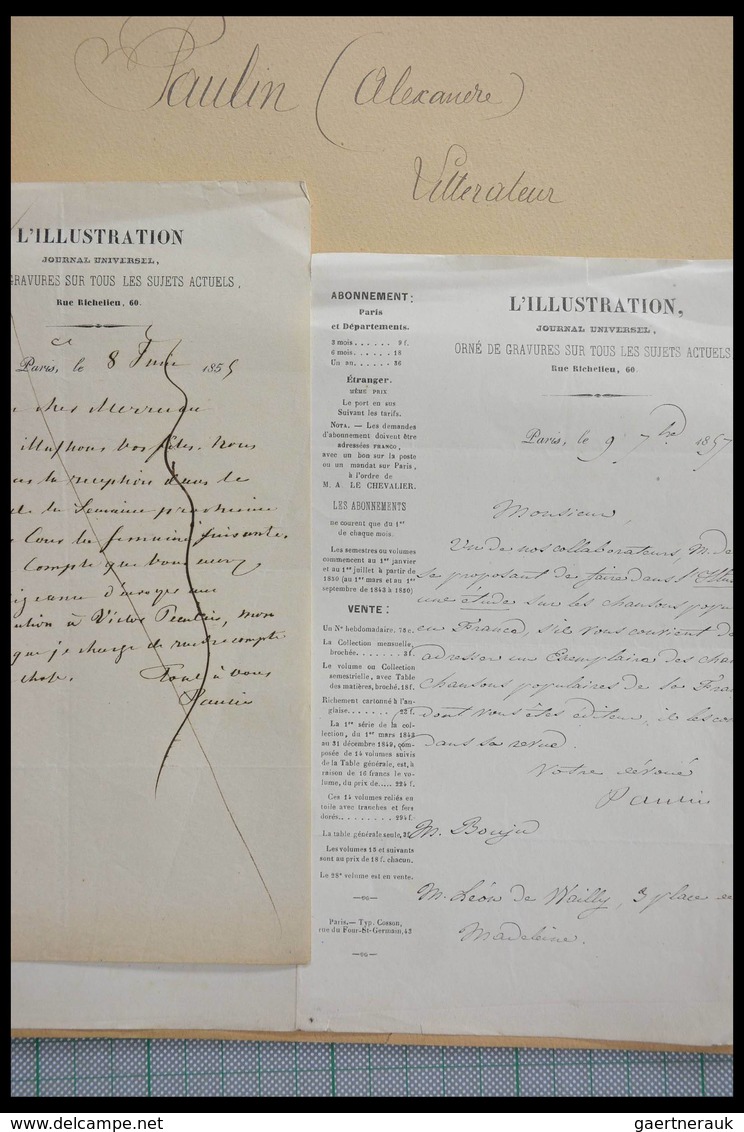 Paulin (Alexandre)
Littérateur
L'ILLUSTRATION
JOURNAL UNIVERSEL,
GRAVURES SUR TOUS LES SUJETS ACTUELS,
Rue Richelieu, 60.
Paris, le 8 1855
cher
Nous
la réception dans le
de la Semaine prochaine
suivante.
Compte que vous
à Victor Paulin, mon
que je charge de rendre compte
Tout à vous
Paulin
ABONNEMENT:
Paris
et Départements.
3 mois...... 9 f.
6 mois...... 18
Un an...... 36
Étranger.
MÊME PRIX
Le port en sus
Suivant les tarifs.
NOTA. — Les demandes
d'abonnement doivent être
adressées FRANCO,
avec un bon sur la poste
ou un mandat sur Paris,
à l'ordre de
M. A. LE CHEVALIER.
LES ABONNEMENTS
ne courent que du 1er
de chaque mois.
Les semestres ou volumes
commencent au 1er janvier
et au 1er juillet à partir de
1850 (au 1er mars et au 1er
septembre de 1843 à 1850)
VENTE:
Un N° hebdomadaire, 75 c.
La Collection mensuelle,
brochée........ 3 f.
Le volume ou Collection
semestrielle, avec Table
des matières, broché. 18 f.
Richement cartonné à l'an-
glaise........ 22 f.
La 1re série de la col-
lection, du 1er mars 1843
au 31 décembre 1849, com-
posée de 14 volumes suivis
de la Table générale, est, à
raison de 16 francs le vo-
lume, du prix de..... 224 f.
Ces 14 volumes reliés en
toile avec tranches et fers
dorés........ 294 f.
La table générale seule, 3 f.
Les volumes 15 et suivants
sont au prix de 18 f. chacun.
Le 28e volume est en vente.
Paris.— Typ. Cosson,
rue du Four-St-Germain, 43
L'ILLUSTRATION,
JOURNAL UNIVERSEL,
ORNÉ DE GRAVURES SUR TOUS LES SUJETS ACTUELS
Rue Richelieu, 60
Paris, le 9 7bre 1857
Monsieur,
Un de nos collaborateurs, M. de
se proposant de faire dans l'Illus
une étude sur les chansons popu
en France, s'il vous convient de
adresser un Exemplaire des chan
chansons populaires de la Fran
dont vous êtes éditeur, il les
dans sa revue.
Votre dévoué
Paulin
M.
M. Léon de Wailly, 3 place
Madeleine.
gaertnerauk